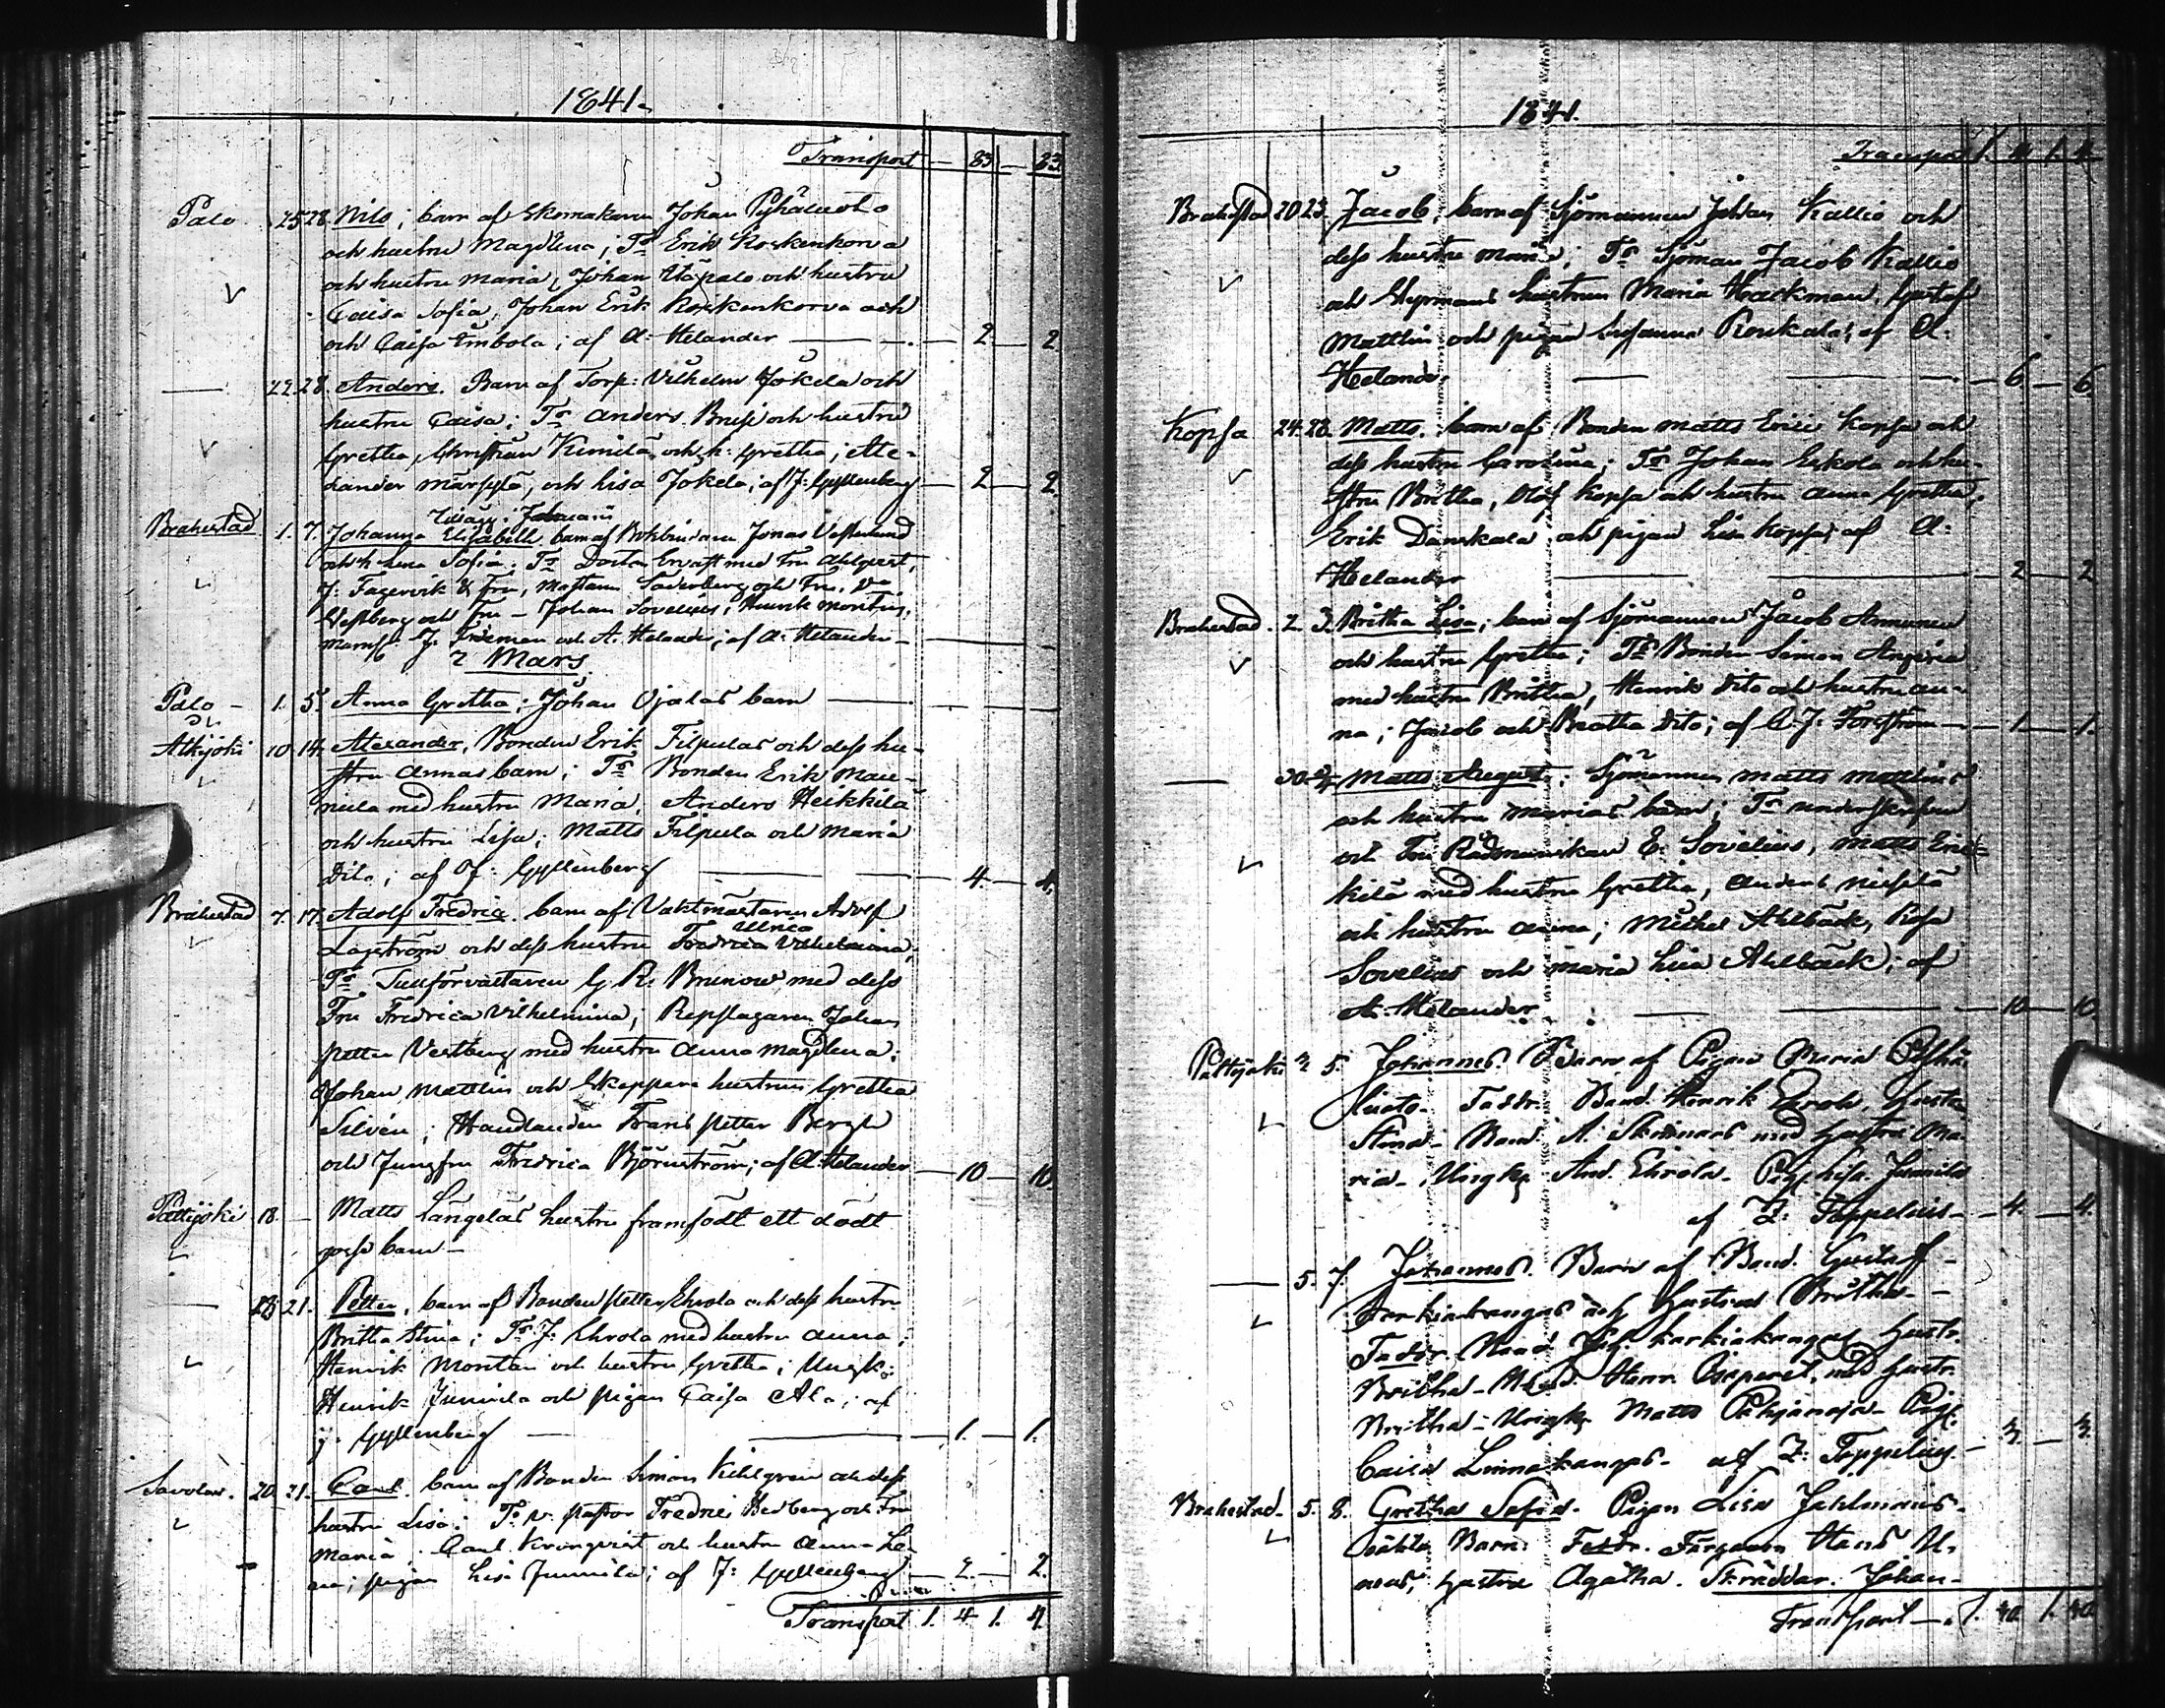 1841.
Transport — 83 — 83.
Palo 25 28. Nils; barn af Skomakaren Johan Pyhäluoto
och hustru Magdlena; Fr Erik Koskenkorva
och hustru Maria, Johan Ylipalo och hustru
Caisa Sofia, Johan Erik Koskenkorva och
och Caisa Embola; af A: Helander — 2 — 2.
— 22. 28. Anders. Barn af Torp: Vilhelm Jokela och
hustru Caisa; Fr Anders och hustru
Gretha, Christian Kimilä och h: Gretha; Ale-
xander Märsylä, och Lisa Jokela; af J: Gyllenberg — 2 — 2.
Tillägg: Januarii
Brahestad 1. 7. Johanna Elisabeth barn af Bokbindaren Jonas Vesterlund
och h Lena Sofia; Fr med Fru Ahlqvist,
J: Fagervik & Fru, Mästaren Söderberg och Fru,
Westberg och Fru – Johan Sovelius, Henrik Montin,
Mamsl. J. Frieman och A. Helander; af A: Helander —
Mars.
Palo – 1. 5. Anna Gretha; Johan Ojalas barn —
Alkijoki 10. 14. Alexander, Bonden Erik Filpulas och dess hu-
stru Annas barn; Fr Bonden Erik Man-
nila med hustru Maria, Anders Heikkilä
och hustru Lisa; Matts Filpula och Maria
Dito; af J: Gyllenberg — 4. — 4.
Brahestad 7. 17. Adolf Fredric barn af Vaktmästaren Adolf
Ulrica
Lagström och dess hustru Fredrica Vilhelmina;
Fr Tullförvaltaren G. R. Brunow med dess
Fru Fredrica Vilhelmina; Repslagaren Johan
Petter Vestberg med hustru Anna Magdlena;
Johan Mattlin och Skeppare hustrun Gretha
Silvén; Handlanden Frans Petter Bergh
och Jungfru Fredrica Björnström; af A: Helander — 10 — 10.
Pattijoki 18. – Matts Längeläs hustru framfödt ett dödt
gosse barn –
— 18 21. Petter, barn af Bonden Petter Ehrola och dess hustru
Britha Stina; Fr J: Ehrola med hustru Anna;
Henrik Montin och hustru Gretha; Ungk:
Henrik Junnila och pigan Caisa Ala; af
J: Gyllenberg — 1. — 1.
Savolax. 20. 21. Carl. barn af Bonden Simon Kihlgren och dess
hustru Lisa: Fr v. Pastor Fredric Hedberg och Fru
Maria; Carl Kronqvist och hustru Anna Le-
na; pigan Lisa Junnila; af J: Gyllenberg — 2. — 2.
Transport 1. 4. 1. 4.
1841.
Transport 1. 4. 1. 4.
Brahestad 20 23. Jacob, barn af Sjömannen Johan Kallio och
dess hustru Maria; Fr Sjöman Jacob Kallio
och Styrmans hustrun Maria Hackman, Gustaf
Mattlin och pigan Susanna Roukala; af A:
Helander — 6 — 6.
Kopsa 24. 28. Matts. barn af Bonden Matts Eric Kopsa och
dess hustru Carolina; Fr Johan Eskola och hu-
stru Britha, Olof Kopsa och hustru Anna Gretha,
Erik Danskala och pigan Lisa Kopsa; af A:
Helander — 2 — 2
Brahestad. 2. 3. Britha Lisa; barn af Sjömannen Jacob Annunen
och hustru Gretha; Fr Bonden Simon Angeria
med hustru Britha, Henrik dito och hustru An-
na; Jacob och Beatha dito; af C. J. Forsström — 1 — 1.
— 30. 2/4 Matts August: Sjömannen Matts Mattlins
och hustru Marias barn; Fr
och Fru Rådmanskan E. Sovelius, Matts Eric-
kilä med hustru Gretha, Anders
och hustru Anna; Michel Ahlbäck, Rosa
Sovelius och Maria Lisa Ahlbäck; af
A. Helander — 10 — 10.
Pattijoki 2 5. Johannes. Barn af Pigan Maria Pyhä-
luoto. Faddr. Bond. Henrik Ehrola, hustr.
Stina – Bond. A. med hustru Ma-
ria – Ungk. And. Ehrola – Pig. Lisa Junnila
af Z: Toppelius – 4. — 4.
— 5. 7. Johannes. Barn af Bond. Gustaf
Karkiakangas och hustrus Britha –
Faddr. Bond. Karkiakangas hustr.
Britha – Bond. Henr. med hustr.
Britha – Ungk. Matts Pig.
Caisa Linnakangas – af Z. Toppelius. – 3. — 3.
Brahestad – 5. 8. Gretha Sofia. Pigan Lisa Juhlmans
oäkta Barn. Faddr. Färgaren Hans U.
hustru Agatha. Skräddar. Johan-
Transport — 1. 40. 1. 40.